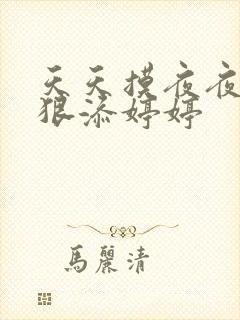 天天摸夜夜
狠添婷婷
馬麗清